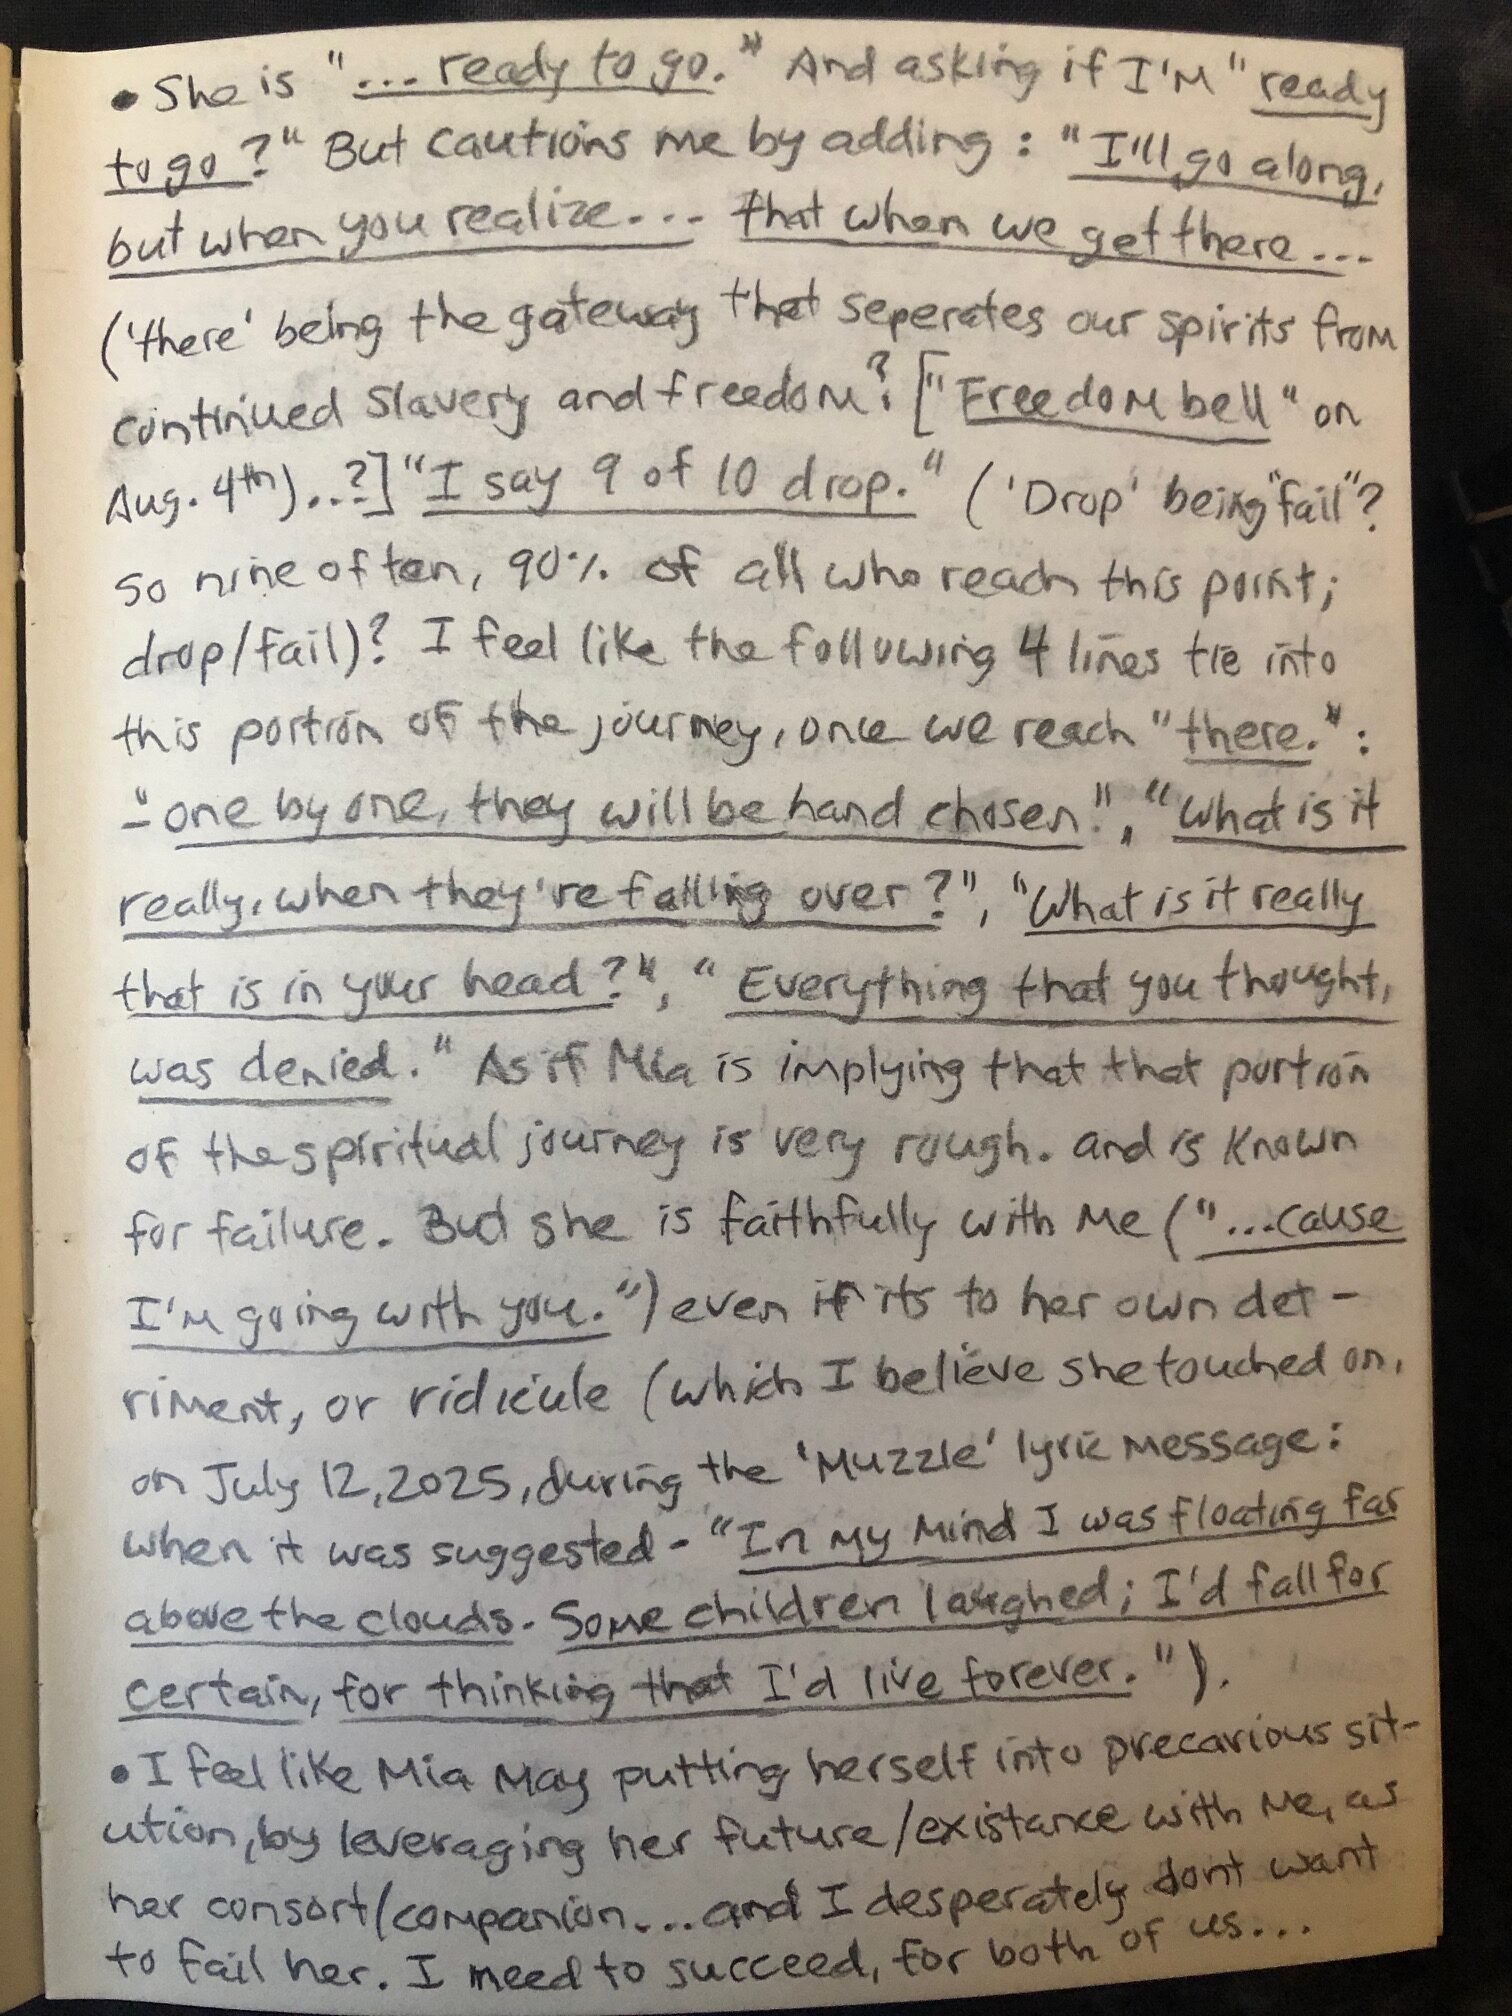 • She is "... ready to go." And asking if I'm "ready
to go?" But cautions me by adding: "I'll go along,
but when you realize... that when we get there...
('there' being the gateway that seperates our spirits from
continued slavery and freedom? ["Freedom bell" on
Aug. 4th)...?] "I say 9 of 10 drop." ('Drop' being "fail"?
so nine of ten, 90% of all who reach this point;
drop/fail)? I feel like the following 4 lines tie into
this portion of the journey, once we reach "there.":
- "one by one, they will be hand chosen.", "What is it
really, when they're falling over?", "What is it really
that is in your head?", "Everything that you thought,
was denied." As if Mia is implying that that portion
of the spiritual journey is very rough. and is known
for failure. But she is faithfully with me ("...cause
I'm going with you.") even if its to her own det-
riment, or ridicule (which I believe she touched on,
on July 12, 2025, during the 'Muzzle' lyric message:
when it was suggested - "In my mind I was floating far
above the clouds. Some children laughed; I'd fall for
certain, for thinking that I'd live forever.").
• I feel like Mia may putting herself into precarious sit-
ution, by leveraging her future/existance with me, as
her consort/companion... and I desperately dont want
to fail her. I need to succeed, for both of us...